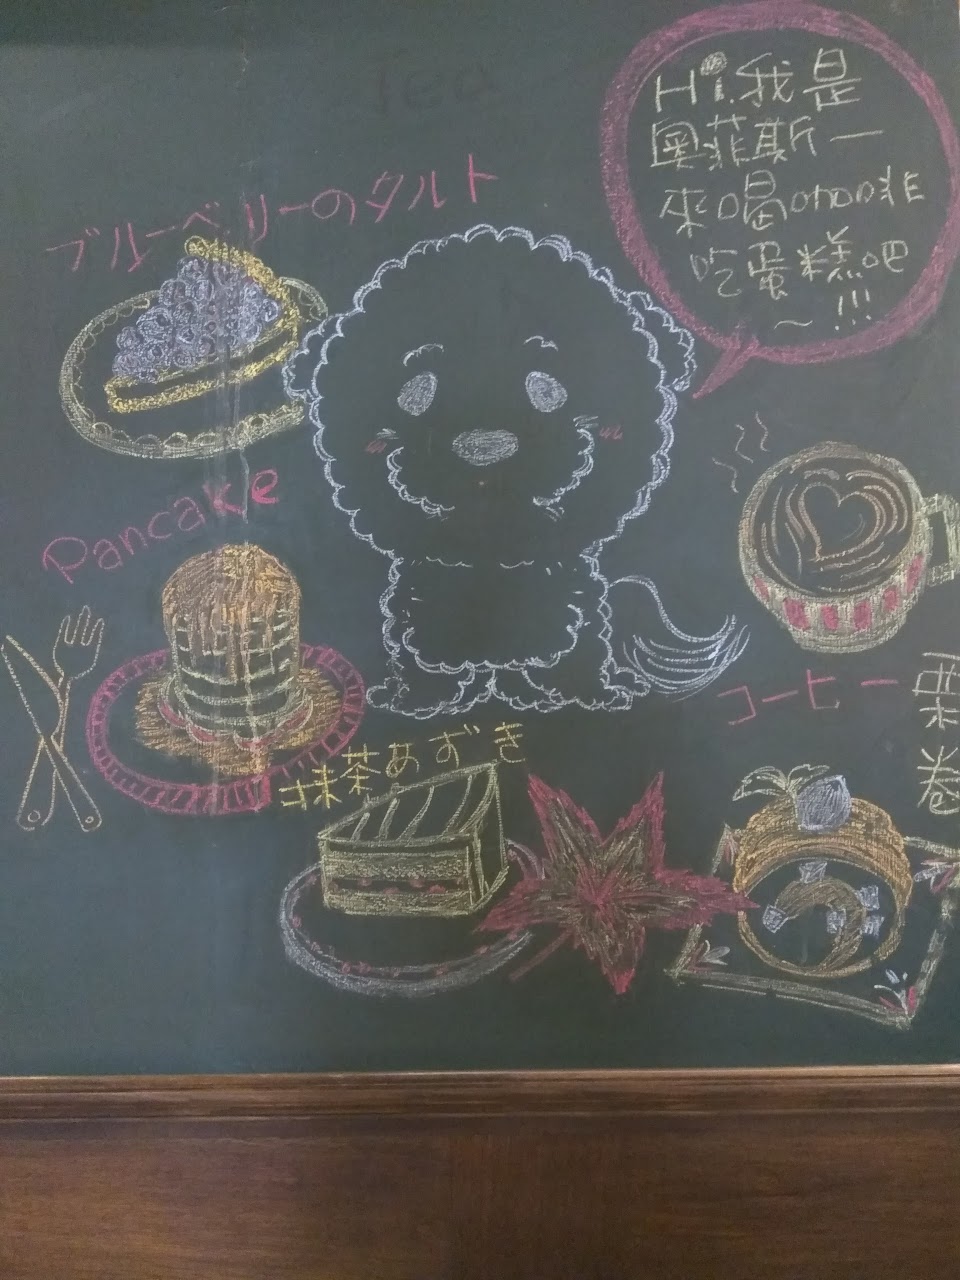 Hi.我是
奧菲斯一
來喝咖啡
吃蛋糕吧
～!!!
ブルーベリーのタルト
Pancake
コーヒー
栗卷
抹茶あずき